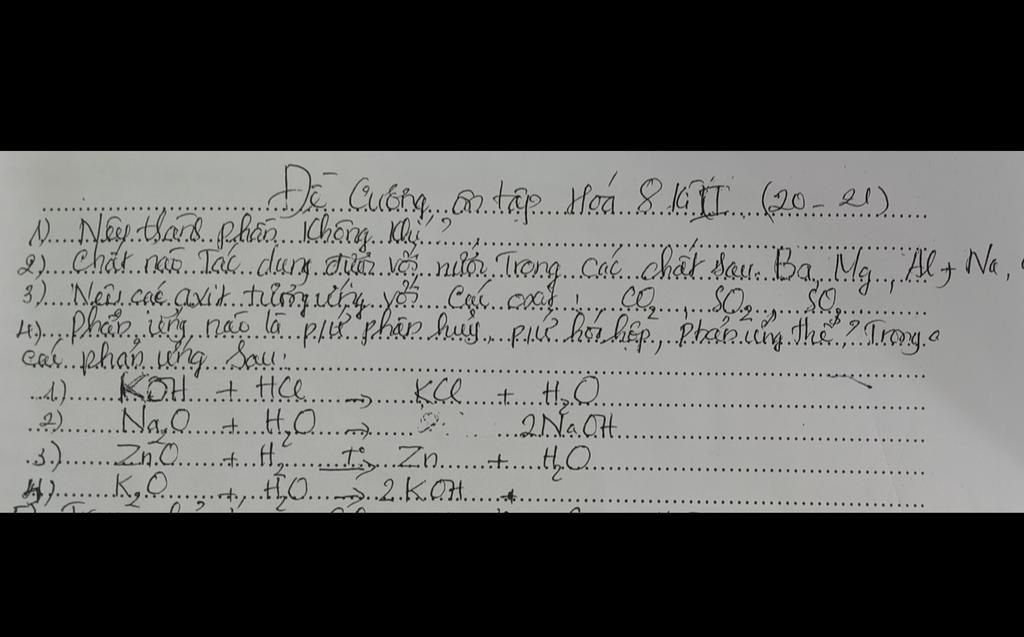 Đề Cương ôn tập Hoá 8 Kì II (20 - 21)
1) Nêu thành phần không khí?
2) Chất nào Tác dụng được với nước Trong các chất sau: Ba, Mg, Al, Na,
3) Nêu các axit tương ứng với các oxit: CO2, SO2, SO3
4) Phản ứng nào là p/ứ phân huỷ, p/ứ hoá hợp, phản ứng thế? Trong
các phản ứng sau:
1) KOH + HCl → KCl + H2O
2) Na2O + H2O → 2NaOH
3) ZnO + H2 T°→ Zn + H2O
4) K2O + H2O → 2KOH